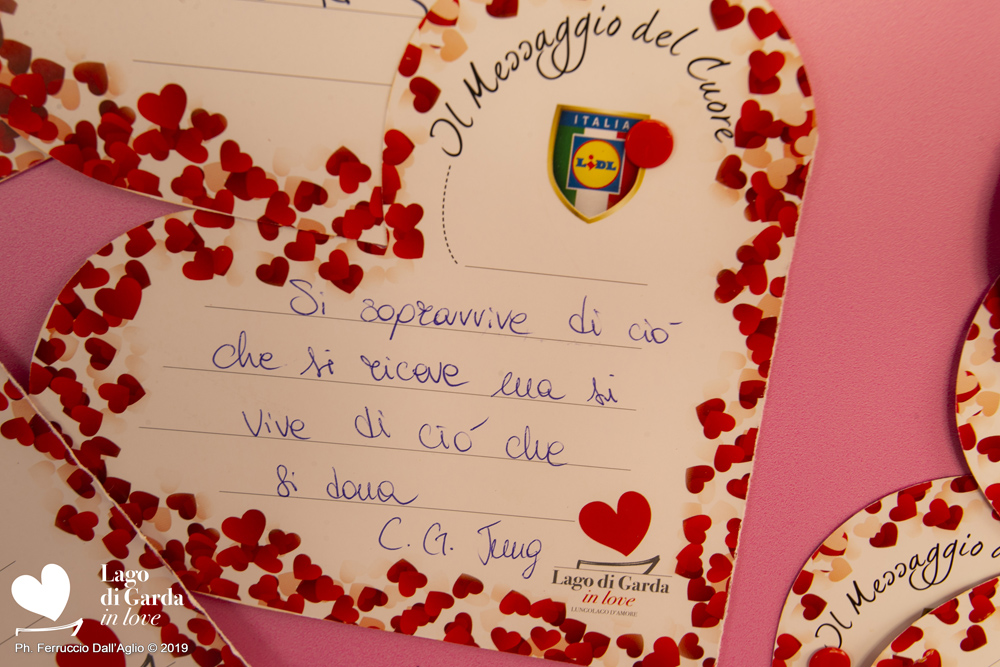 Il Messaggio del Cuore
ITALIA
LIDL
Si sopravvive di ciò
che si riceve ma si
vive di ciò che
si dona
C. G. Jung
Lago di Garda
in love
LUNGOLAGO D'AMORE
Il Messaggio
Lago
di Garda
in love
Ph. Ferruccio Dall'Aglio © 2019